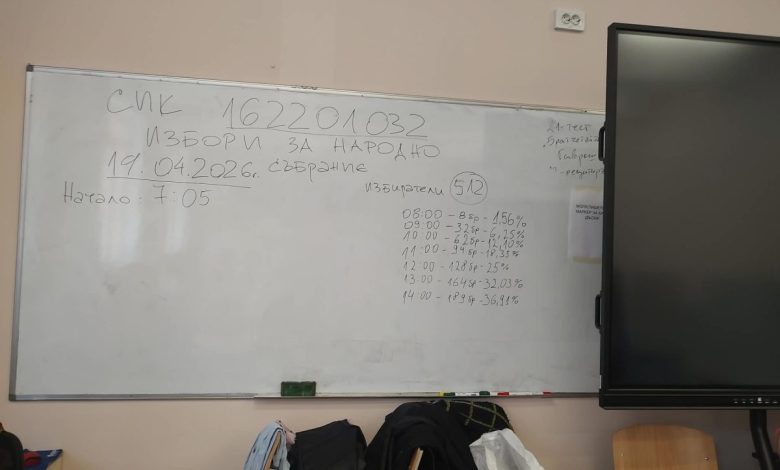 СИК 162201032
ИЗБОРИ ЗА НАРОДНО
19.04.2026г. СЪБРАНИЕ
Начало: 7:05
избиратели 512
08:00 – 8бр – 1,56%
09:00 – 32бр – 6,25%
10:00 – 62бр – 12,10%
11:00 – 94бр – 18,35%
12:00 – 128бр – 25%
13:00 – 164бр – 32,03%
14:00 – 189бр – 36,91%
21-тест